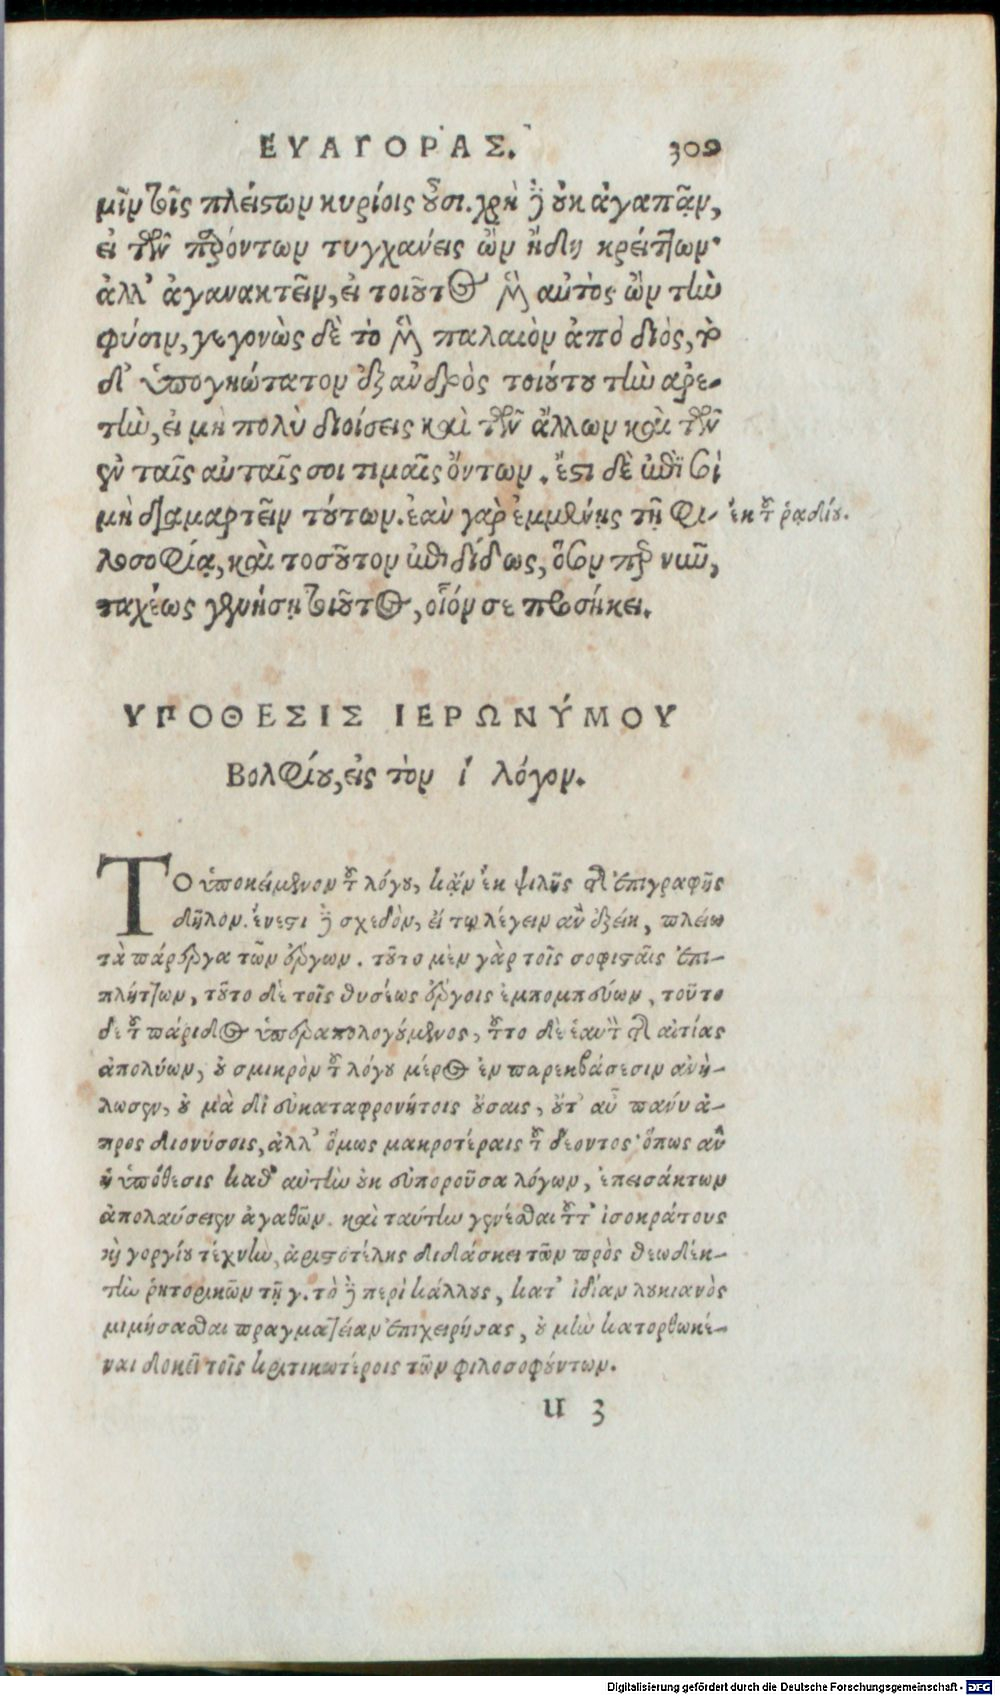 ΕΥΑΓΟΡΑΣ. 309
μῖν τοῖς πλείστων κυρίοις οὖσι. χρὴ δ' οὐκ ἀγαπᾷν,
εἰ τῶν παρόντων τυγχάνεις ὢν ἤδη κρείττων·
ἀλλ' ἀγανακτεῖν, εἰ τοιοῦτος μὲν αὐτὸς ὢν τὴν
φύσιν, γεγονὼς δὲ τὸ μὲν παλαιὸν ἀπὸ διὸς, τὸ
δ' ὑπογυιώτατον ἐξ ἀνδρὸς τοιούτου τὴν ἀρε-
τὴν, εἰ μὴ πολὺ διοίσεις καὶ τῶν ἄλλων καὶ τῶν
ἐν ταῖς αὐταῖς σοι τιμαῖς ὄντων. ἔστι δὲ ἐπὶ σοὶ
μὴ διαμαρτεῖν τούτων. ἐὰν γὰρ ἐμμένῃς τῇ φι-
λοσοφίᾳ, καὶ τοσοῦτον ἐπιδίδως, ὅσον περ νῦν,
ταχέως γενήσῃ τοιοῦτος, οἷόν σε προσήκει.
ἐκ τοῦ ῥᾳδίου.
ΥΠΟΘΕΣΙΣ ΙΕΡΩΝΥΜΟΥ
Βολφίου, εἰς τὸν ί λόγον.
ΤΟ ὑποκείμενον τοῦ λόγου, κἂν ἐκ ψιλῆς τῆς ἐπιγραφῆς
δῆλον. ἔνεστι δὲ σχεδὸν, εἴ τῳ λέγειν ἂν δόξειε, πλείω
τὰ πάρεργα τῶν ἔργων. τοῦτο μὲν γὰρ τοῖς σοφισταῖς ἐπι-
πλήττων, τοῦτο δὲ τοῖς θησέως ἔργοις ἐμπομπεύων, τοῦτο
δὲ τοῦ πάριδος ὑπεραπολογούμενος, τοῦτο δὲ ἑαυτὸν τῆς αἰτίας
ἀπολύων, οὐ σμικρὸν τοῦ λόγου μέρος ἐν παρεκβάσεσιν ἀνή-
λωσεν, οὐ μὰ δί' εὐκαταφρονήτοις οὔσαις, οὔτ' αὖ πάνυ ἀ-
προς διονύσοις, ἀλλ' ὅμως μακροτέραις τοῦ δέοντος· ὅπως ἂν
ἡ ὑπόθεσις καθ' αὑτὴν οὐκ εὐποροῦσα λόγων, ἐπεισάκτων
ἀπολαύσειεν ἀγαθῶν. καὶ ταύτην γενέσθαι τοῦτ' ἰσοκράτους
καὶ γοργίου τέχνην, ἀριστοτέλης διδάσκει τῶν πρὸς θεωδέκ-
την ῥητορικῶν τῇ γ. τὸ δὲ περὶ κάλλους, κατ' ἰδίαν λουκιανὸς
μιμήσασθαι πραγματείαν ἐπιχειρήσας, οὐ μὴν κατορθωκέ-
ναι δοκεῖ τοῖς κριτικωτέροις τῶν φιλοσοφούντων.
u 3
Digitalisierung gefördert durch die Deutsche Forschungsgemeinschaft - DFG